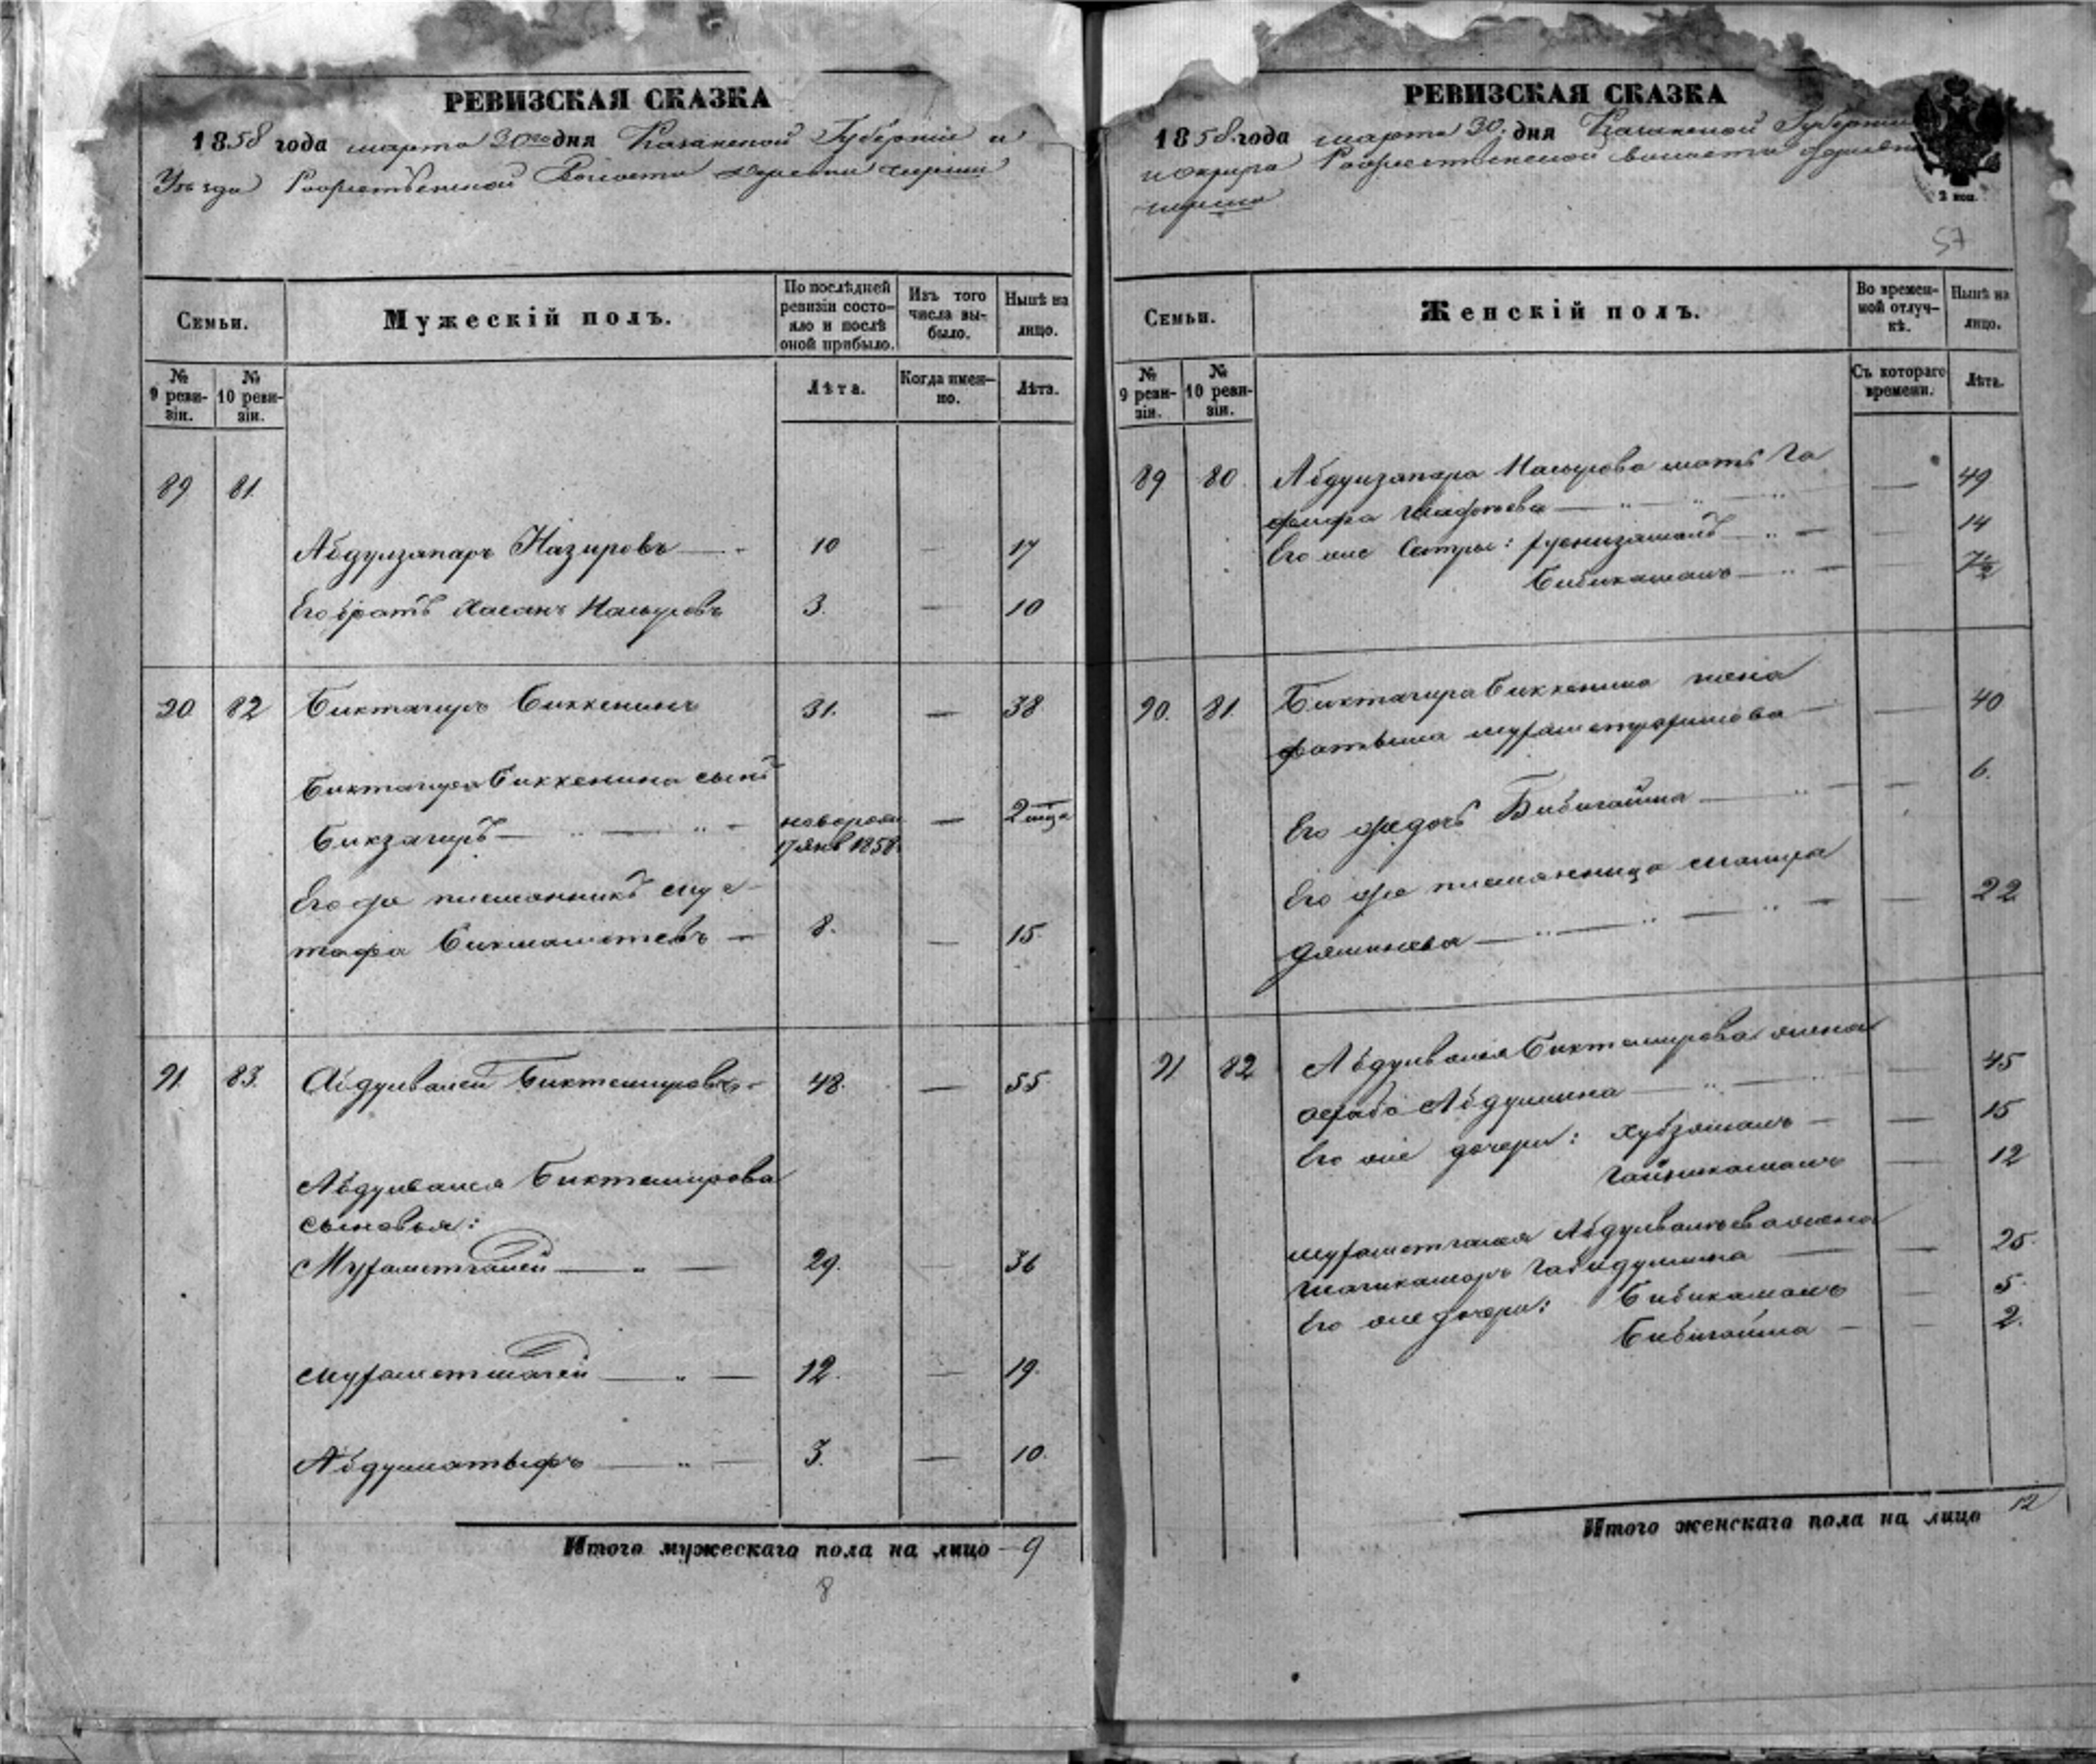 РЕВИЗСКАЯ СКАЗКА
1858 года марта 30го дня Казанской Губерніи и
Уѣзда Рождественской Волости деревни
Семьи.
Мужескій полъ.
По послѣдней ревизіи состо-
яло и послѣ оной прибыло.
Изъ того числа вы-
было.
Нынѣ на лицо.
№ 9 реви-
зіи.
№ 10 реви-
зіи.
Лѣта.
Когда имен-
но.
Лѣта.
89 81.
Абдулзапаръ Назировъ — 10 — 17
Его братъ Хасанъ 3. — 10
90 82 Биктагиръ Биккенинъ 31. — 38
Биктагира Биккенина сынъ
Бикзагиръ — " — " — новорож 17 янв 1858. — 2 мца
Его же племянникъ Мус-
тафа Бикмаметевъ — 8. — 15.
91. 83. Абдулвалей Биктемировъ — 48. — 55
Абдулвалея Биктемирова
сыновья:
Мухаметгалей — " — 29. — 36
Мухаметшагей — " — 12. — 19.
Абдуллатыфъ — " — 3. — 10.
Итого мужескаго пола на лицо — 9
8
РЕВИЗСКАЯ СКАЗКА
1858 года марта 30. дня Казанской Губерніи
и округа Рождественской волости деревни
2 коп.
57
Семьи.
Женскій полъ.
Во времен-
ной отлуч-
кѣ.
Нынѣ на лицо.
№ 9 реви-
зіи.
№ 10 реви-
зіи.
Съ котораго времени.
Лѣта.
89 80. Абдулзапара мать Га — 49
Его же Сестры: — 14
Бибикамалъ — " — 7½
90. 81. Биктагира Биккенина жена
— 40
Его же дочь Бибигайша — " — 6.
Его же племянница
— " — " — 22
91 82 Абдулвалея Биктемирова жена
Абдуллина — " — 45
Его же дочери: Хубзямалъ — 15
— 12
Мухаметгалея Абдулвалеева жена
Габидуллина — 25.
Его же дочери: Бибикамалъ — 5.
Бибигайша — 2.
Итого женскаго пола на лицо 12